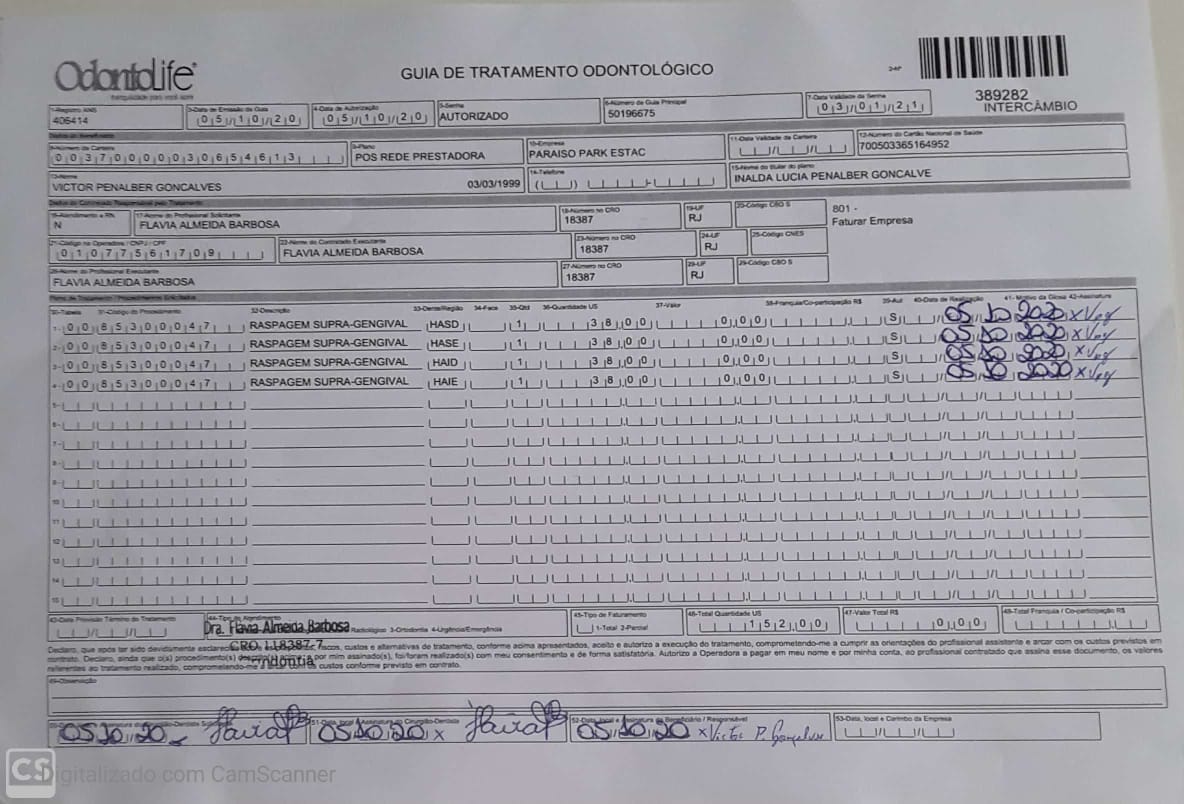 OdontoLife®
tranquilidade para você sorrir
GUIA DE TRATAMENTO ODONTOLÓGICO
389282
INTERCÂMBIO
1-Registro ANS
406414
3-Data de Emissão da Guia
05/10/20
4-Data de Autorização
05/10/20
5-Senha
AUTORIZADO
6-Número da Guia Principal
50196675
7-Data Validade da Senha
03/01/21
Dados do Beneficiário
8-Número da Carteira
00370000030654613
9-Plano
POS REDE PRESTADORA
10-Empresa
PARAISO PARK ESTAC
11-Data Validade da Carteira
12-Número do Cartão Nacional de Saúde
700503365164952
13-Nome
VICTOR PENALBER GONCALVES 03/03/1999
14-Telefone
15-Nome do titular do plano
INALDA LUCIA PENALBER GONCALVE
Dados do Contratado Responsável pelo Tratamento
16-Atendimento a RN
N
17-Nome do Profissional Solicitante
FLAVIA ALMEIDA BARBOSA
18-Número no CRO
18387
19-UF
RJ
20-Código CBO S
801 -
Faturar Empresa
21-Código na Operadora / CNPJ / CPF
01077561709
22-Nome do Contratado Executante
FLAVIA ALMEIDA BARBOSA
23-Número no CRO
18387
24-UF
RJ
25-Código CNES
26-Nome do Profissional Executante
FLAVIA ALMEIDA BARBOSA
27-Número no CRO
18387
28-UF
RJ
29-Código CBO S
Plano de Tratamento / Procedimentos Solicitados
30-Tabela 31-Código do Procedimento 32-Descrição 33-Dente/Região 34-Face 35-Qtd 36-Quantidade US 37-Valor 38-Franquia/Co-participação R$ 39-Aut 40-Data de Realização 41- Motivo da Glosa 42-Assinatura
1- 00 85300047 RASPAGEM SUPRA-GENGIVAL HASD 1 38,00 0,00 S 05 10 2020 x
2- 00 85300047 RASPAGEM SUPRA-GENGIVAL HASE 1 38,00 0,00 S 05 10 2020 x
3- 00 85300047 RASPAGEM SUPRA-GENGIVAL HAID 1 38,00 0,00 S 05 10 2020 x
4- 00 85300047 RASPAGEM SUPRA-GENGIVAL HAIE 1 38,00 0,00 S 05 10 2020 x
5-
6-
7-
8-
9-
10-
11-
12-
13-
14-
15-
43-Data Previsão Término do Tratamento
44-Tipo de Atendimento
Dra. Flavia Almeida Barbosa
Radiológico 3-Ortodontia 4-Urgência/Emergência
45-Tipo de Faturamento
1-Total 2-Parcial
46-Total Quantidade US
152,00
47-Valor Total R$
0,00
48-Total Franquia / Co-participação R$
CRO 118387-7
Declaro, que após ter sido devidamente esclarecido riscos, custos e alternativas de tratamento, conforme acima apresentados, aceito e autorizo a execução do tratamento, comprometendo-me a cumprir as orientações do profissional assistente e arcar com os custos previstos em
contrato. Declaro, ainda que o(s) procedimento(s) por mim assinado(s), foi/foram realizado(s) com meu consentimento e de forma satisfatória. Autorizo a Operadora a pagar em meu nome e por minha conta, ao profissional contratado que assina esse documento, os valores
referentes ao tratamento realizado, comprometendo-me a custos conforme previsto em contrato.
49-Observação
05 10 20
51-Data, local e Assinatura do Cirurgião-Dentista
05 10 20 x
52-Data, local e Assinatura do Beneficiário / Responsável
05 10 20 x Victor P. Gonçalves
53-Data, local e Carimbo da Empresa
CS Digitalizado com CamScanner